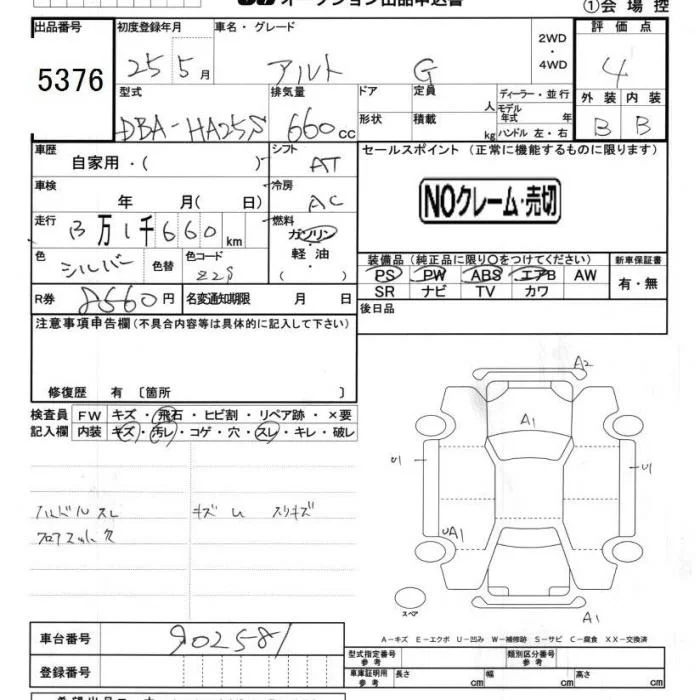 オークション出品申込書
①会場控
出品番号 初度登録年月 車名・グレード 評価点
5376 25 5月 アルト G 2WD・4WD 4
型式 排気量 ドア 定員 人 ディーラー・並行 外装 内装
DBA-HA25S 660cc 形状 積載 kg モデル年式 年 ハンドル 左・右 B B
車歴 シフト セールスポイント（正常に機能するものに限ります）
自家用・( ) AT
車検 冷房 NOクレーム・売切
年 月( 日) AC
走行 燃料
3万1千660km ガソリン・軽油・( )
色 色替 色コード 装備品（純正品に限り○をつけてください） 新車保証書
シルバー Z2S PS PW ABS エアB AW 有・無
SR ナビ TV カワ
R券 8560円 名変通知期限 月 日 後日品
注意事項申告欄（不具合内容等は具体的に記入して下さい）
修復歴 有〔箇所 〕
検査員 FW キズ・飛石・ヒビ割・リペア跡・×要
記入欄 内装 キズ・汚レ・コゲ・穴・スレ・キレ・破レ
ハンドルスレ キズ U スリキズ
フロアマット欠
A2
A1
U1 U1
UA1
スペア A1
A－キズ E－エクボ U－凹み W－補修跡 S－サビ C－腐食 XX－交換済
車台番号 902581
型式指定番号 参考 類別区分番号 参考
登録番号 車庫証明用 参考 長さ cm 幅 cm 高さ cm